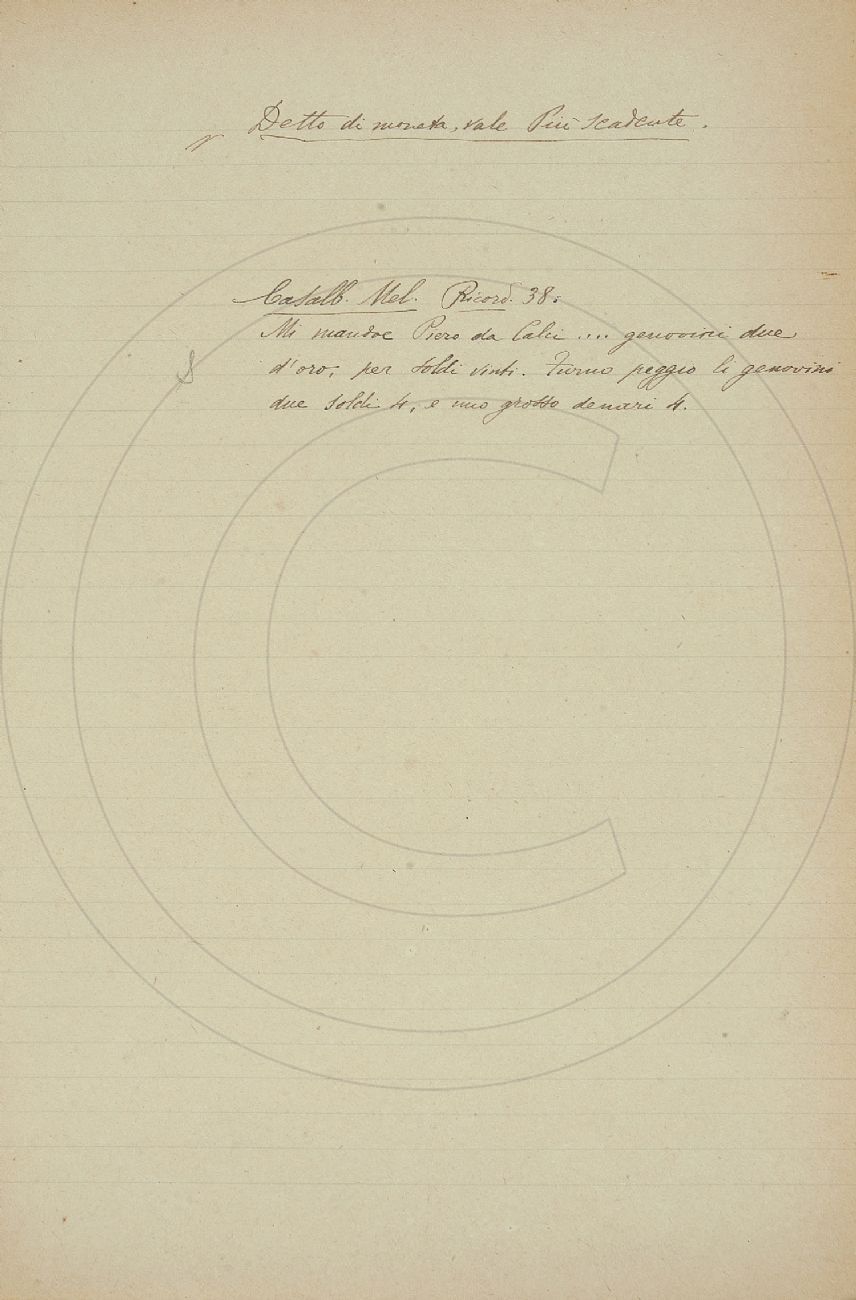 Detto di moneta, vale Più scadente.
Casalb. Mel. Ricord. 38:
Mi mandoe Piero da Calci .... genovini due
d'oro, per soldi vinti. Furno peggio li genovini
due soldi 4, e uno grosso denari 4.